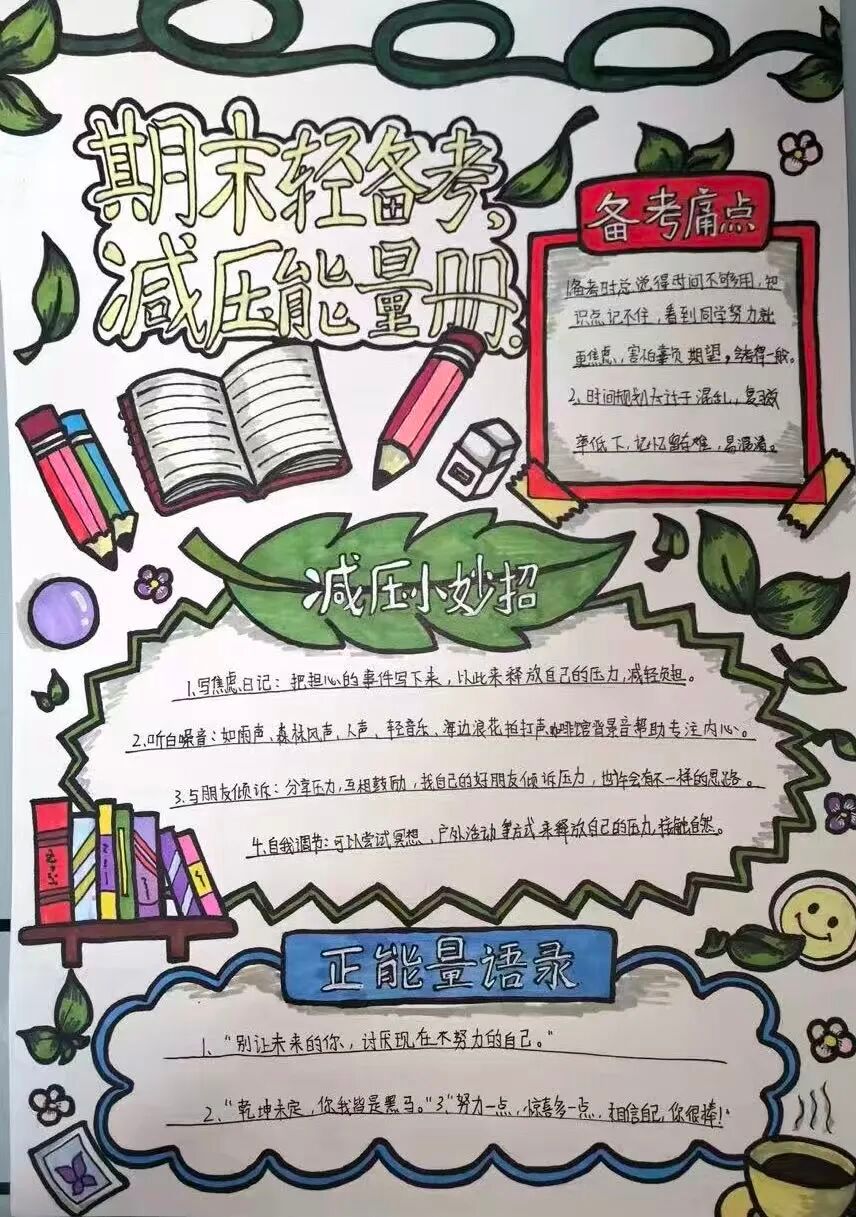 期末轻备考,
减压能量册.
备考痛点
1.备考时总觉得时间不够用,知
识点记不住,看到同学努力就
更焦虑,害怕辜负期望,会考得一般。
2、时间规划过于混乱,复习效
率低下,记忆留存难,易混淆。
减压小妙招
1.写焦虑日记:把担心的事件写下来,以此来释放自己的压力,减轻负担。
2.听白噪音:如雨声、森林风声、人声、轻音乐、海边浪花拍打声,咖啡馆背景音帮助专注内心。
3.与朋友倾诉:分享压力,互相鼓励,找自己的好朋友倾诉压力,也许会有不一样的思路。
4.自我调节:可以尝试冥想、户外活动等方式来释放自己的压力,接触自然。
正能量语录
1、“别让未来的你,讨厌现在不努力的自己。”
2、“乾坤未定,你我皆是黑马。”3、“努力一点,惊喜多一点,相信自己,你很棒!”